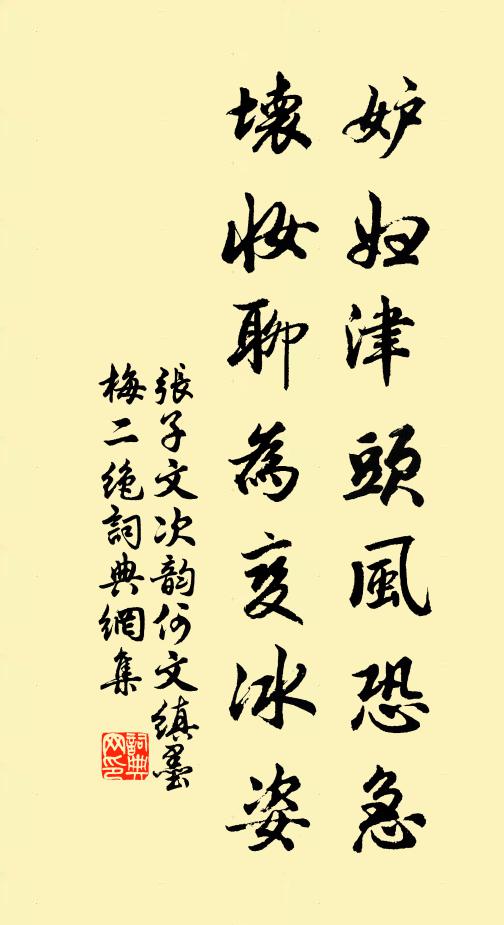 妒妇津頭風恐急
壊妆聊為变冰姿
張子文次韵何文縝墨
梅二绝詞典網集
詞典
网印